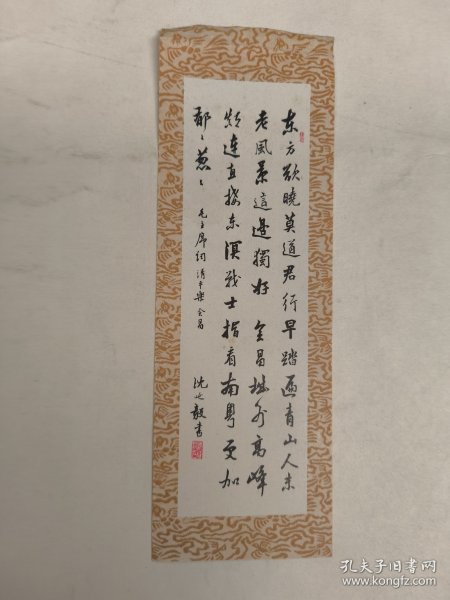 东方欲晓莫道君行早踏遍青山人未
老风景這邊獨好会昌城外高峰
颠连直接东溟战士指看南粤更加
郁〻葱〻
毛主席词清平乐会昌
沈必毅书
孔夫子旧书网
www.kongfz.com